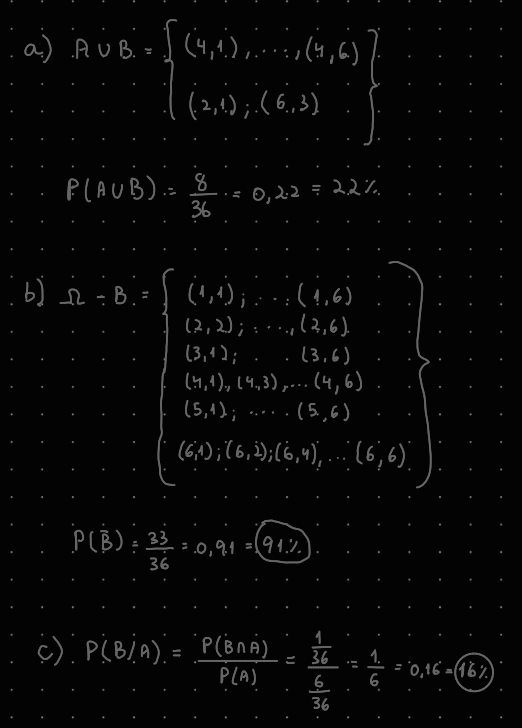 a) A ∪ B = { (4,1), ...., (4,6)
(2,1); (6,3) }
P(A∪B) = 8/36 = 0,22 = 22%
b) Ω - B = { (1,1); .... (1,6)
(2,2); ...., (2,6)
(3,1); (3,6)
(4,1), (4,3), ... (4,6)
(5,1); .... (5,6)
(6,1); (6,2); (6,4), ... (6,6) }
P(B̄) = 33/36 = 0,91 = 91%
c) P(B/A) = P(B∩A)/P(A) = 1/36 / 6/36 = 1/6 = 0,16 = 16%